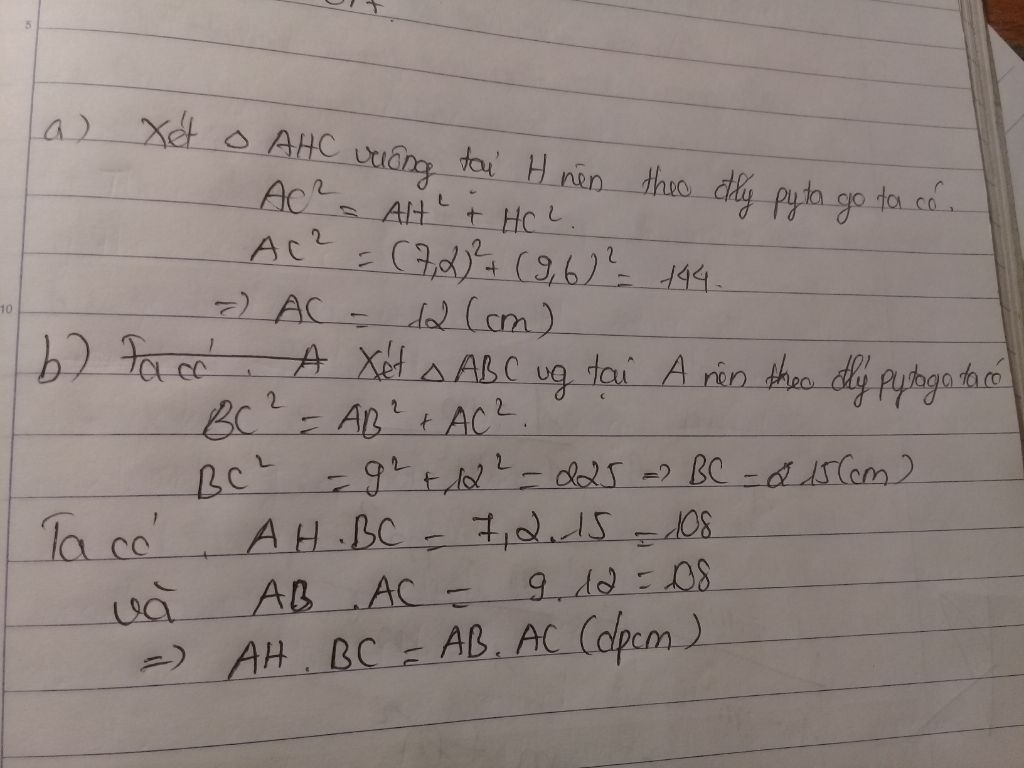 a) Xét Δ AHC vuông tại H nên theo đlý pytago ta có.
AC² = AH² + HC².
AC² = (7,2)² + (9,6)² = 144.
=> AC = 12 (cm)
b) Ta có . A Xét Δ ABC vg tại A nên theo đlý pytago ta có
BC² = AB² + AC².
BC² = 9² + 12² = 225 => BC = 15(cm)
Ta có . AH.BC = 7,2.15 = 108
và AB.AC = 9.12 = 108
=> AH.BC = AB.AC (đpcm)